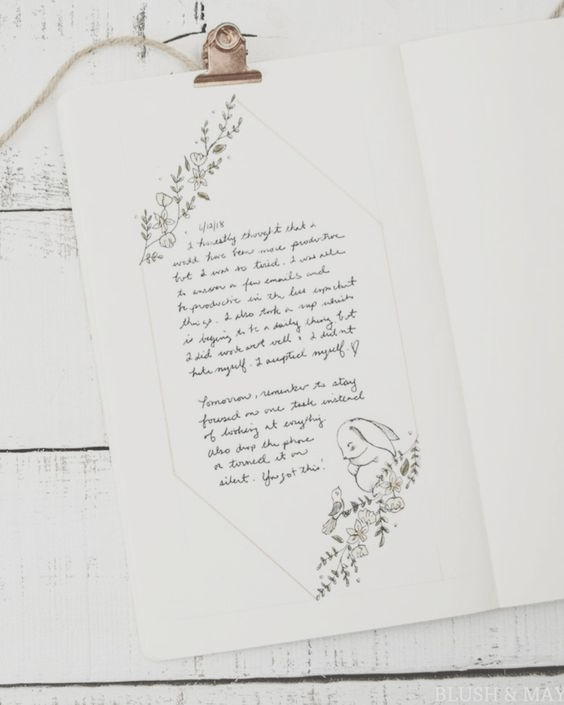 6/12/18
I honestly thought that I
would have been more productive
but I was so tired. I was able
to answer a few emails and
be productive in the less important
things. I also took a nap which
is beging to be a daily thing but
I did work out well & I didn't
hate myself. I accepted myself.♡
Tomorrow, remember to stay
focused on one task instead
of looking at everything
also drop the phone
or turned it on
silent. You got this!
BLUSH & MAY